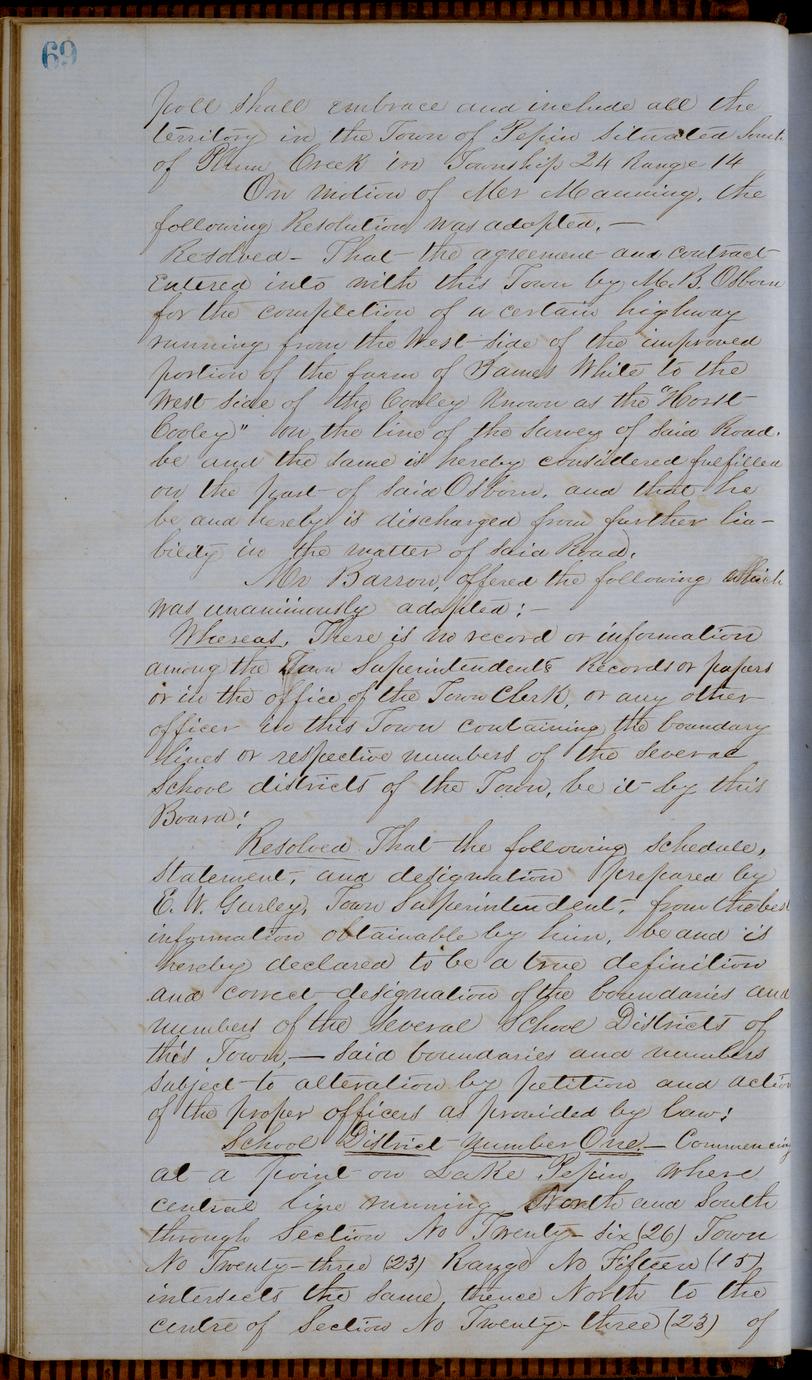 69
poll shall embrace and include all the
territory in the Town of Pepin situated South
of Plum Creek in Township 24 Range 14
On motion of Mr Manning, the
following Resolution was adopted. —
Resolved - That the agreement and contract
entered into with this Town by M. B. Osborn
for the completion of a certain highway
running from the West side of the improved
portion of the farm of James White to the
West side of the Cooley known as the "Horst
Cooley)" on the line of the survey of said Road.
be and the same is hereby considered fulfilled
on the part of said Osborn, and that he
be and hereby is discharged from further lia-
bility in the matter of said Road.
Mr Barron, offered the following which
was unanimously adopted: —
Whereas, There is no record or information
among the Town Superintendents Records or papers
or in the office of the Town Clerk, or any other
officer in this Town containing the boundary
lines or respective numbers of the several
School districts of the Town, be it by this
Board;
Resolved That the following schedule,
statement, and designation prepared by
E. W. Gurley, Town Superintendent, from the best
information obtainable by him, be and is
hereby declared to be a true definition
and correct designation of the boundaries and
numbers of the several School Districts of
this Town, — said boundaries and numbers
subject to alteration by petition and action
of the proper officers as provided by law:
School District number One. — Commencing
at a point on Lake Pepin where
central line running North and South
through Section No Twenty-six (26) Town
No Twenty-three (23) Range No Fifteen (15)
intersects the same, thence North to the
centre of Section No Twenty-three (23) of